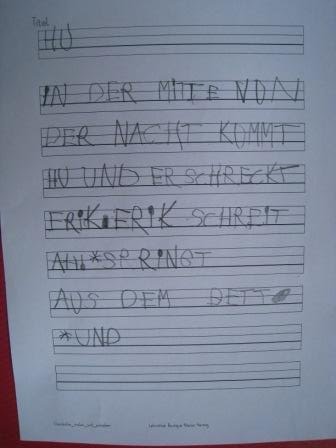 Titel
HU
IN DER MITTE VON
DER NACHT KOMMT
HU UND ERSCHRECKT
ERIK. ERIK SCHREIT
AH! *SPRINGT
AUS DEM BETT
*UND